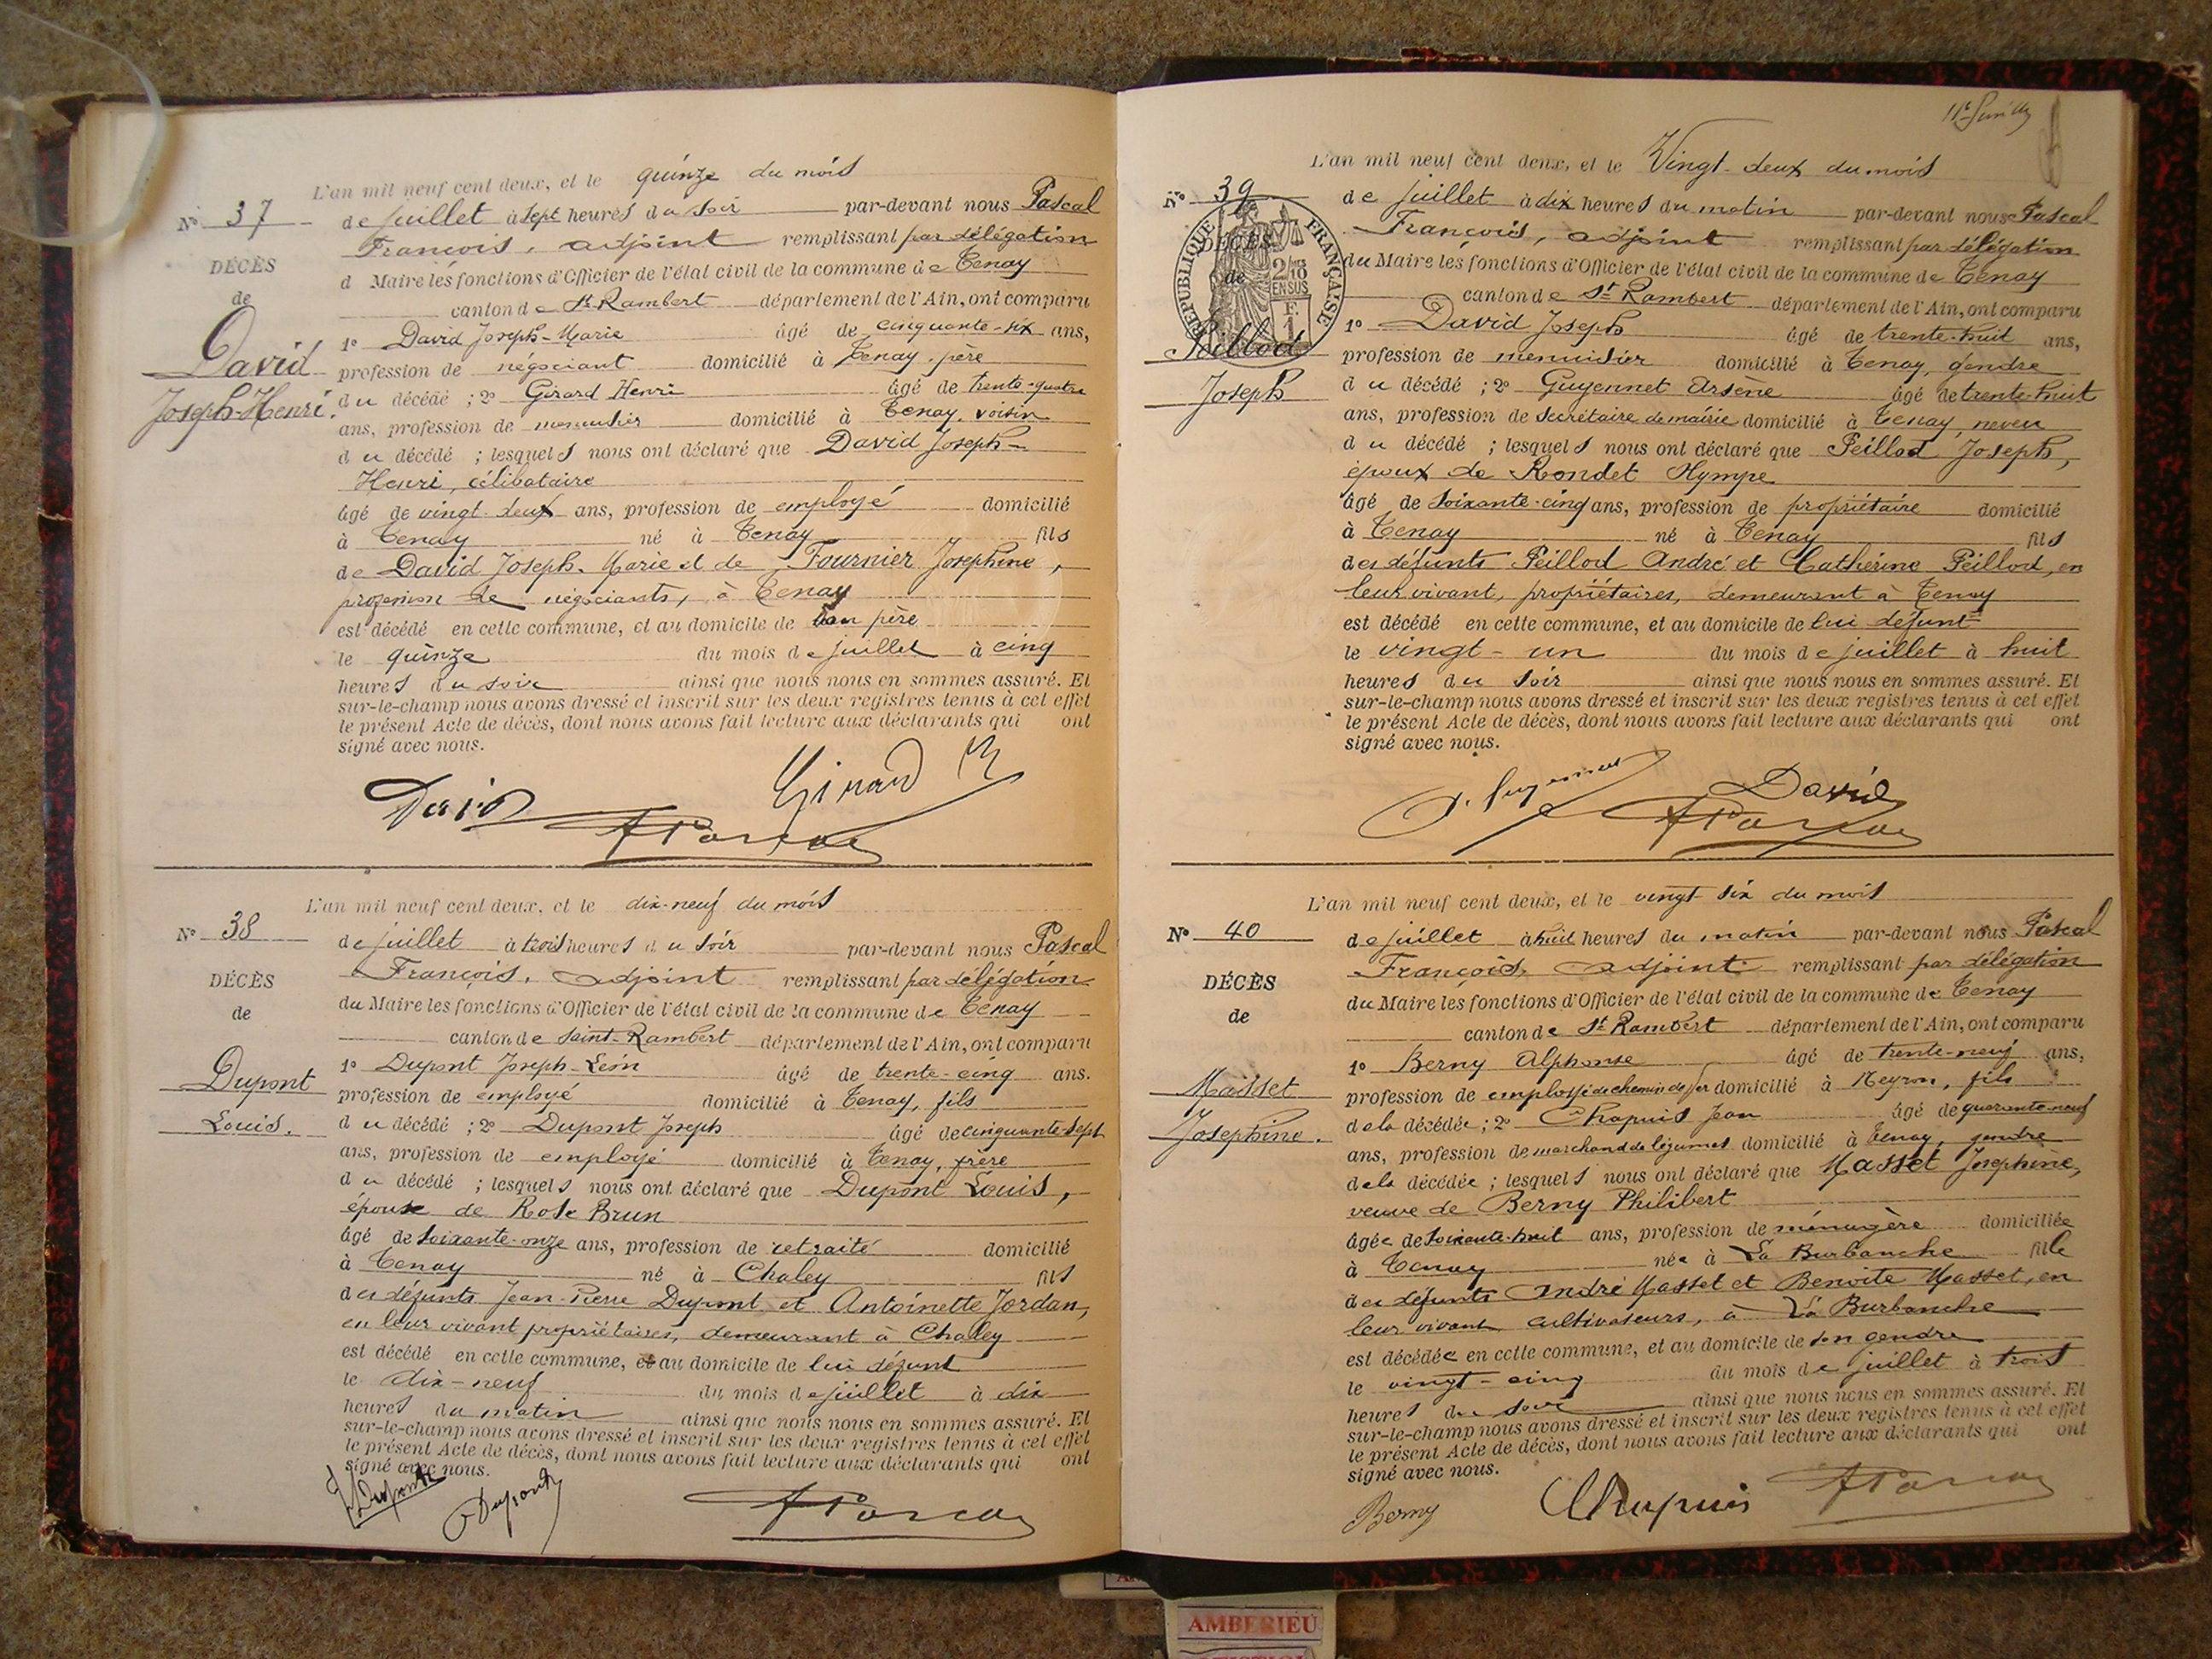 L'an mil neuf cent deux, et le quinze du mois
N° 37
de juillet à sept heures du soir par-devant nous Pascal
François, adjoint remplissant par délégation
DÉCÈS
d Maire les fonctions d'Officier de l'état civil de la commune de Tenay
de
canton de St Rambert département de l'Ain, ont comparu
David
Joseph-Henri.
1° David Joseph-Marie âgé de cinquante-six ans,
profession de négociant domicilié à Tenay, père
du décédé ; 2° Girard Henri âgé de trente-quatre
ans, profession de menuisier domicilié à Tenay, voisin
du décédé ; lesquels nous ont déclaré que David Joseph-
Henri, célibataire
âgé de vingt-deux ans, profession de employé domicilié
à Tenay né à Tenay fils
de David Joseph-Marie et de Fournier Joséphine,
profession de négociants, à Tenay
est décédé en cette commune, et au domicile de son père
le quinze du mois de juillet à cinq
heures du soir ainsi que nous nous en sommes assuré. Et
sur-le-champ nous avons dressé et inscrit sur les deux registres tenus à cet effet
le présent Acte de décès, dont nous avons fait lecture aux déclarants qui ont
signé avec nous.
David Girard
Pascal
L'an mil neuf cent deux, et le dix-neuf du mois
N° 38
de juillet à trois heures du soir par-devant nous Pascal
François, adjoint remplissant par délégation
DÉCÈS
du Maire les fonctions d'Officier de l'état civil de la commune de Tenay
de
canton de Saint-Rambert département de l'Ain, ont comparu
Dupont
Louis.
1° Dupont Joseph-Léon âgé de trente-cinq ans.
profession de employé domicilié à Tenay, fils
du décédé ; 2° Dupont Joseph âgé de cinquante-sept
ans, profession de employé domicilié à Tenay, frère
du décédé ; lesquels nous ont déclaré que Dupont Louis,
époux de Rose Brun
âgé de soixante-onze ans, profession de retraité domicilié
à Tenay né à Chaley fils
des défunts Jean-Pierre Dupont et Antoinette Jordan,
en leur vivant propriétaires, demeurant à Chaley
est décédé en cette commune, et au domicile de lui défunt
le dix-neuf du mois de juillet à dix
heures du matin ainsi que nous nous en sommes assuré. Et
sur-le-champ nous avons dressé et inscrit sur les deux registres tenus à cet effet
le présent Acte de décès, dont nous avons fait lecture aux déclarants qui ont
signé avec nous.
Dupont Dupont Pascal
L'an mil neuf cent deux, et le Vingt-deux du mois
N° 39
de juillet à dix heures du matin par-devant nous Pascal
François, adjoint remplissant par délégation
DÉCÈS
de
RÉPUBLIQUE FRANÇAISE
2/10 EN SUS
F. 1
du Maire les fonctions d'Officier de l'état civil de la commune de Tenay
canton de St Rambert département de l'Ain, ont comparu
Peillod
Joseph
1° David Joseph âgé de trente-huit ans,
profession de menuisier domicilié à Tenay, gendre
du décédé ; 2° Guyennet Arsène âgé de trente-huit
ans, profession de secrétaire de mairie domicilié à Tenay, neveu
du décédé ; lesquels nous ont déclaré que Peillod Joseph,
époux de Rondet Olympe
âgé de soixante-cinq ans, profession de propriétaire domicilié
à Tenay né à Tenay fils
des défunts Peillod André et Catherine Peillod, en
leur vivant, propriétaires, demeurant à Tenay
est décédé en cette commune, et au domicile de lui défunt
le vingt-un du mois de juillet à huit
heures du soir ainsi que nous nous en sommes assuré. Et
sur-le-champ nous avons dressé et inscrit sur les deux registres tenus à cet effet
le présent Acte de décès, dont nous avons fait lecture aux déclarants qui ont
signé avec nous.
A. Guyennet David
Pascal
L'an mil neuf cent deux, et le vingt-six du mois
N° 40
de juillet à huit heures du matin par-devant nous Pascal
François, adjoint remplissant par délégation
DÉCÈS
du Maire les fonctions d'Officier de l'état civil de la commune de Tenay
de
canton de St Rambert département de l'Ain, ont comparu
Masset
Joséphine.
1° Berny Alphonse âgé de trente-neuf ans,
profession de employé de chemin de fer domicilié à Neyron, fils
de la décédée ; 2° Chapuis Jean âgé de quarante-neuf
ans, profession de marchand de légumes domicilié à Tenay, gendre
de la décédée ; lesquels nous ont déclaré que Masset Joséphine,
veuve de Berny Philibert
âgée de soixante-huit ans, profession de ménagère domiciliée
à Tenay née à La Burbanche fille
des défunts André Masset et Benoite Masset, en
leur vivant cultivateurs, à La Burbanche
est décédée en cette commune, et au domicile de son gendre
le vingt-cinq du mois de juillet à trois
heures du soir ainsi que nous nous en sommes assuré. Et
sur-le-champ nous avons dressé et inscrit sur les deux registres tenus à cet effet
le présent Acte de décès, dont nous avons fait lecture aux déclarants qui ont
signé avec nous.
Berny Chapuis Pascal
AMBERIEU